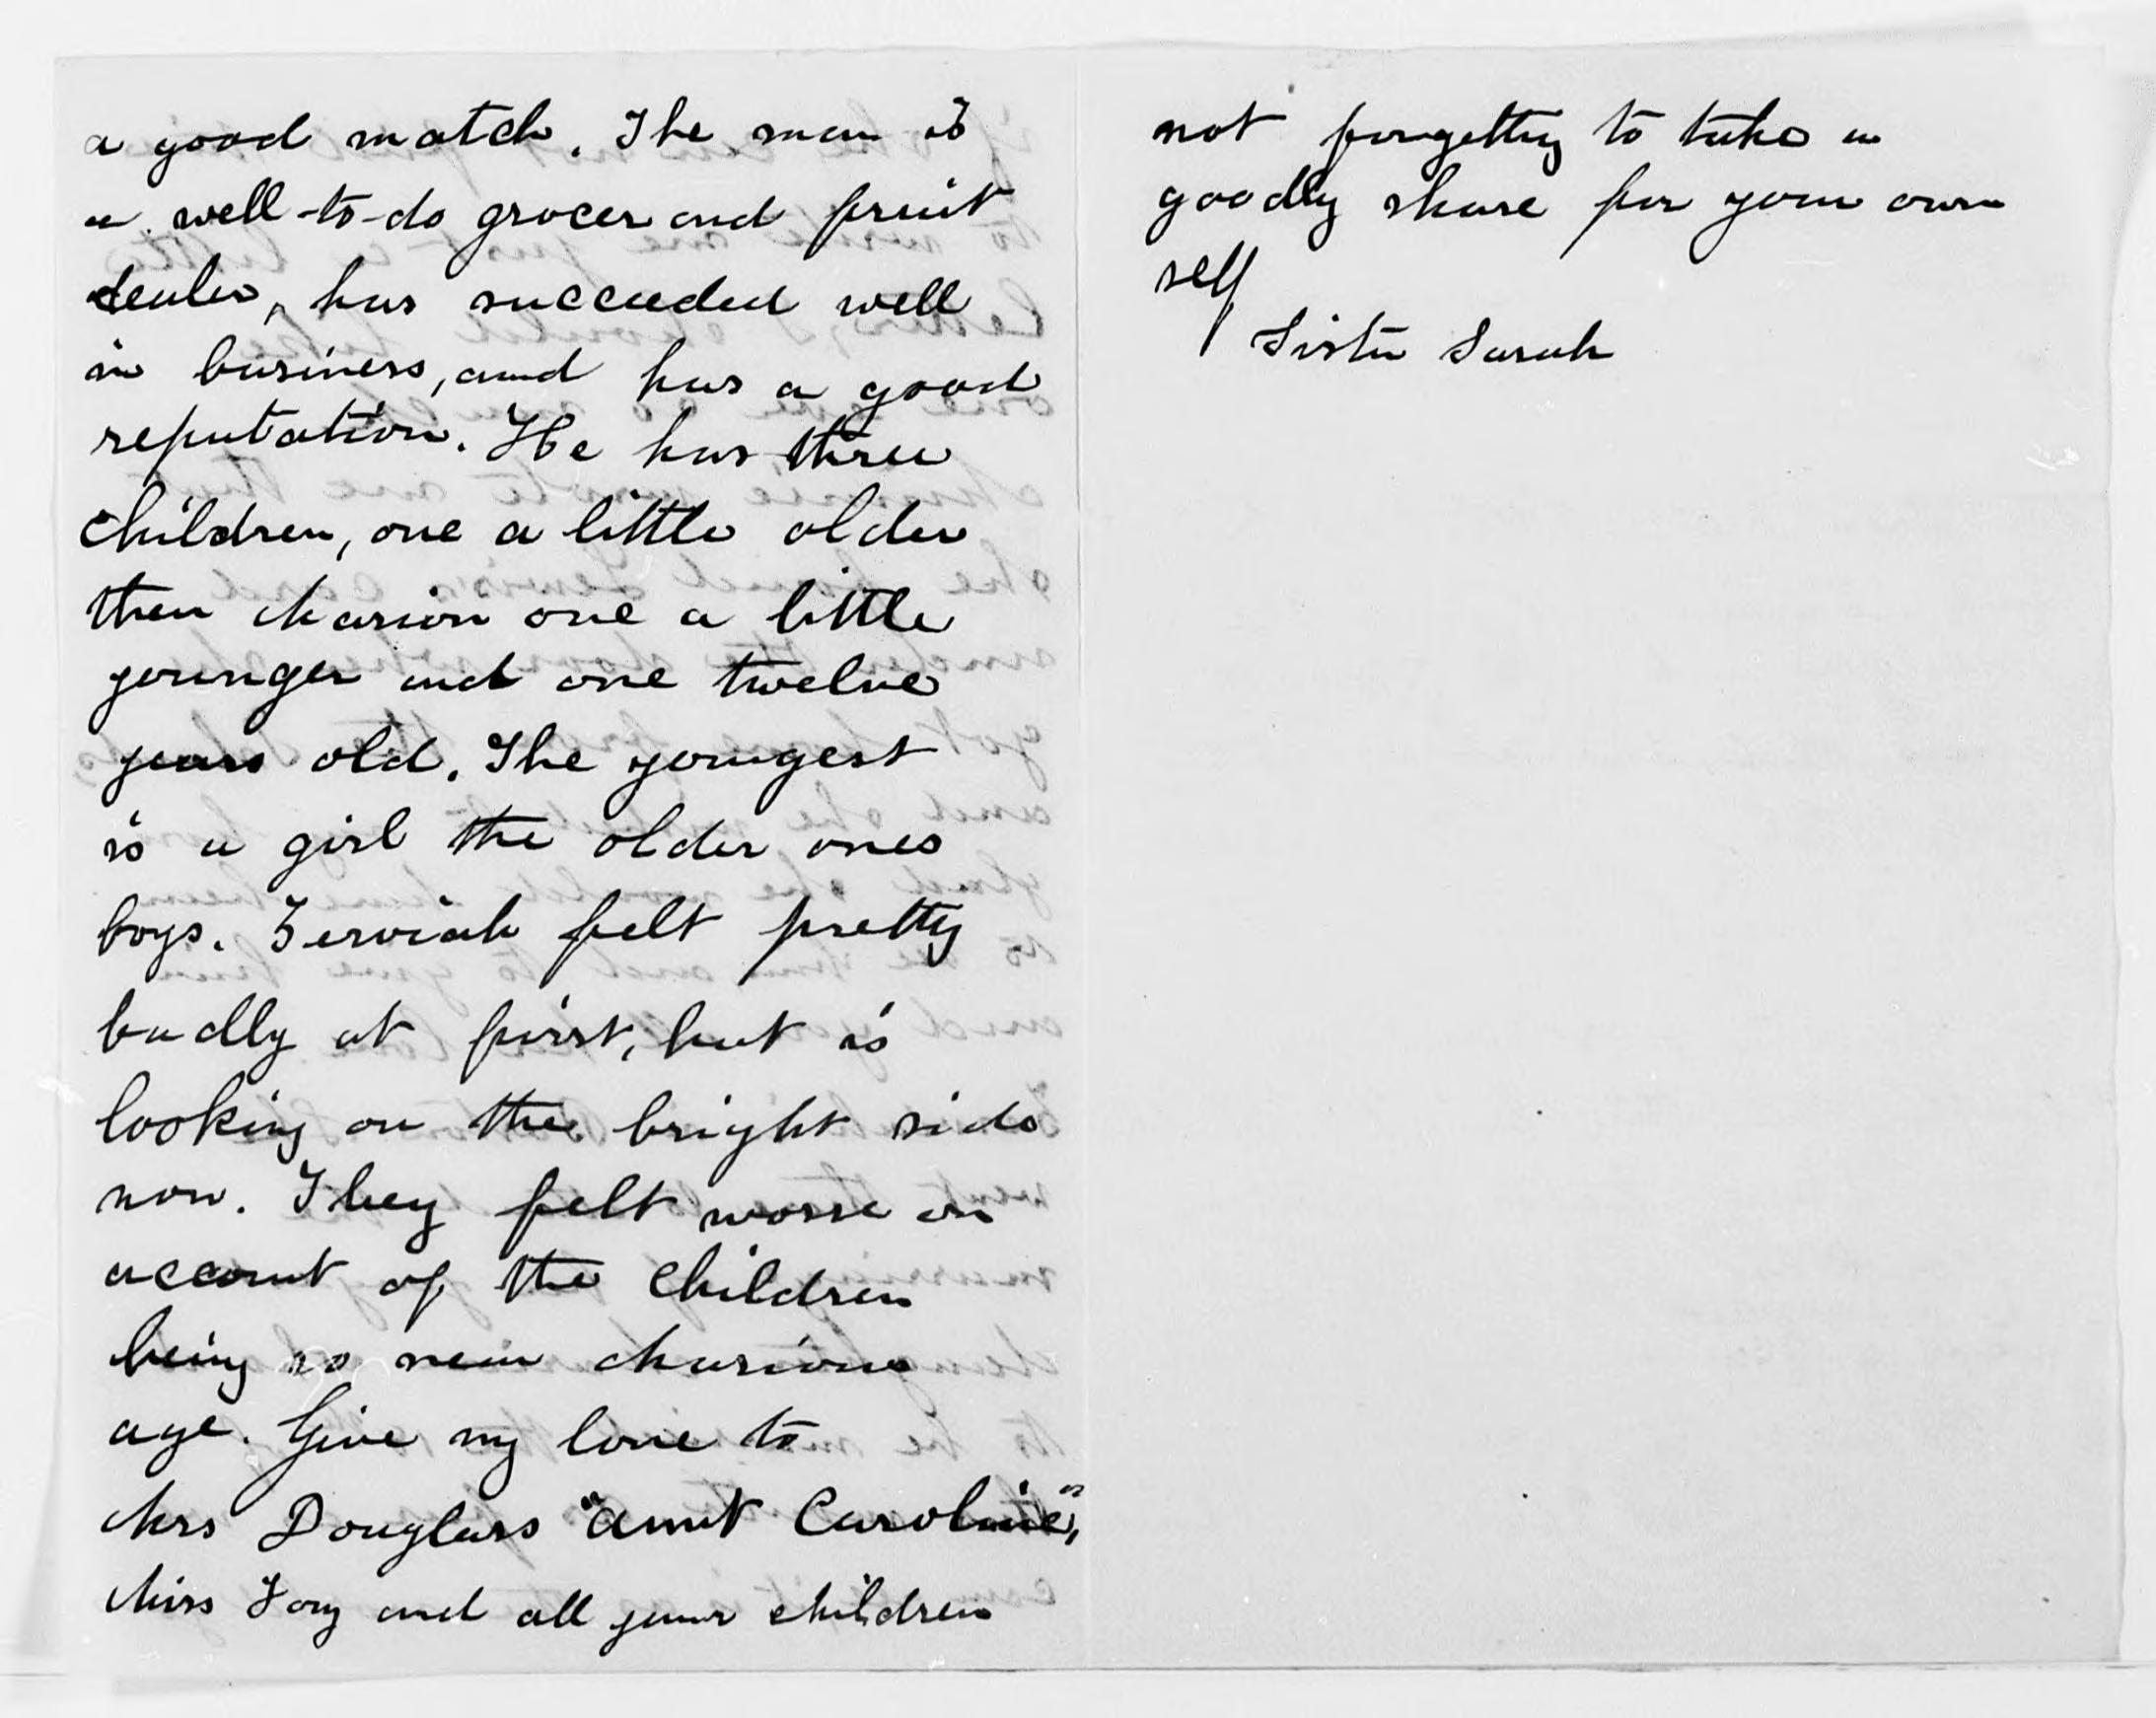 a good match. The man is
a well-to-do grocer and fruit
dealer, has succeeded well
in business, and has a good
reputation. He has three
children, one a little older
then Marion one a little
younger and one twelve
years old. The youngest
is a girl the older ones
boys. Zerviah felt pretty
badly at first, but is
looking on the bright side
now. They felt worse on
account of the children
being so near Marions
age. Give my love to
Mrs Douglass "Aunt Caroline",
Miss Foy and all your children
not forgetting to take a
goodly share for your own
self
Sister Sarah